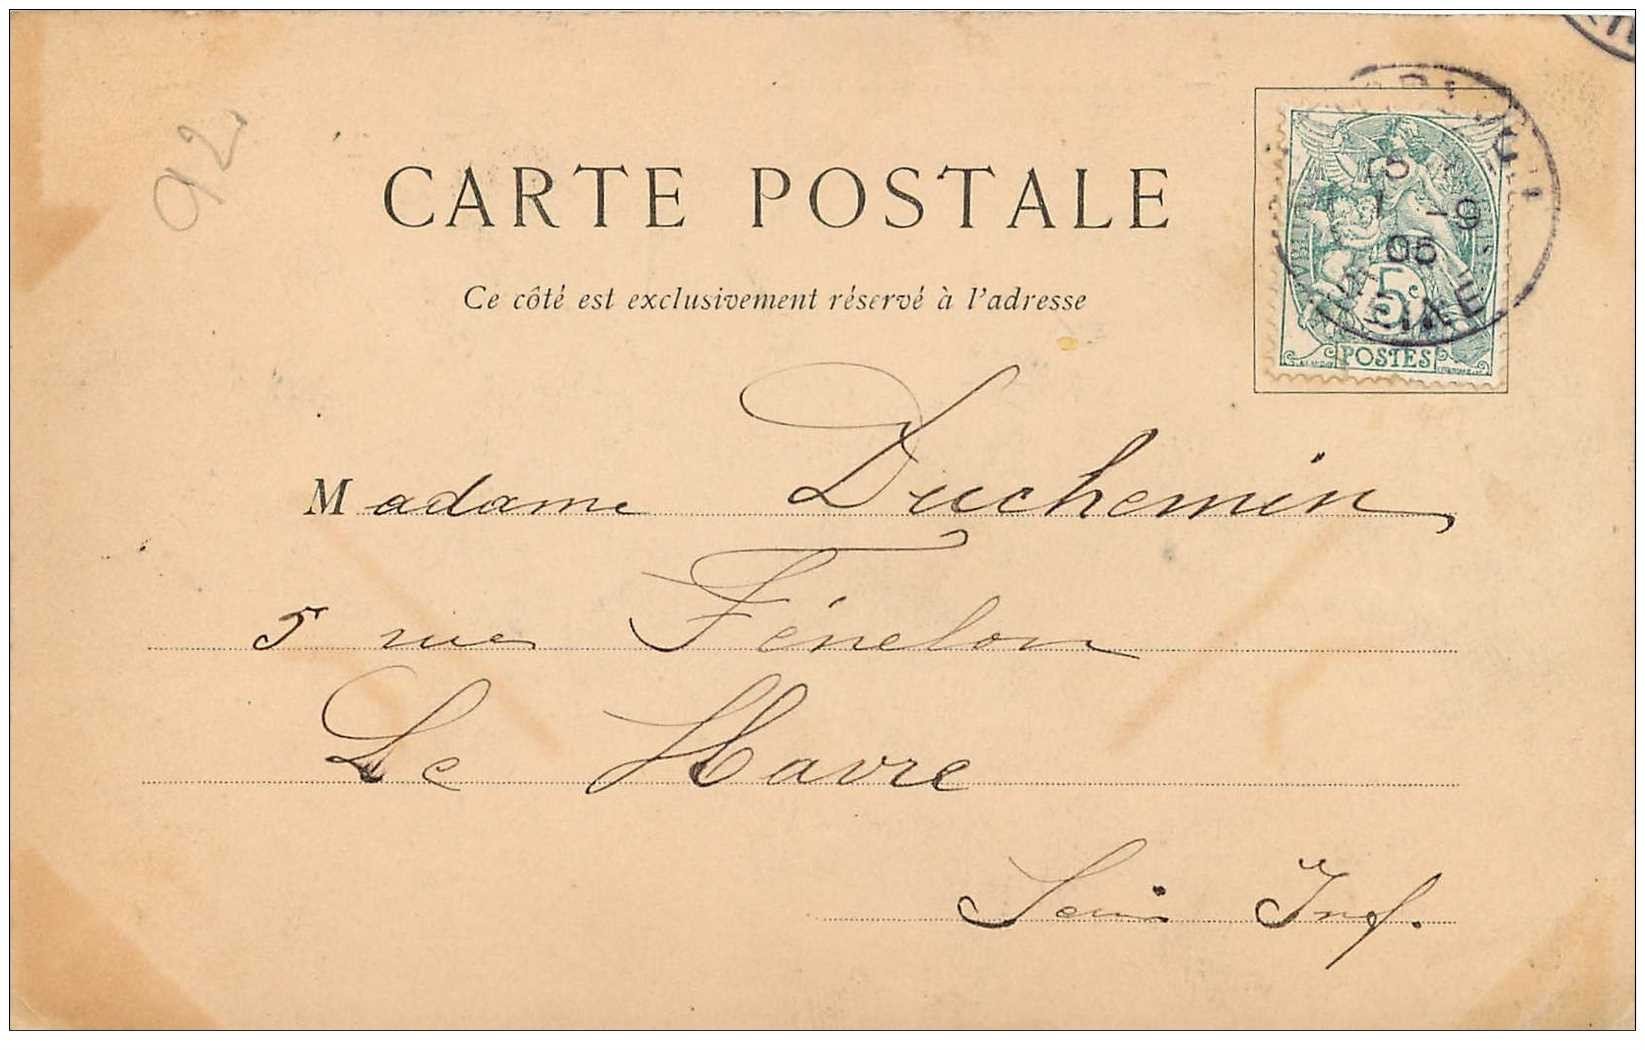 92
CARTE POSTALE
Ce côté est exclusivement réservé à l'adresse
15
-9
05
SEINE
5c
POSTES
Madame Duchemin
5 rue Fénelon
Le Havre
Sein Inf.